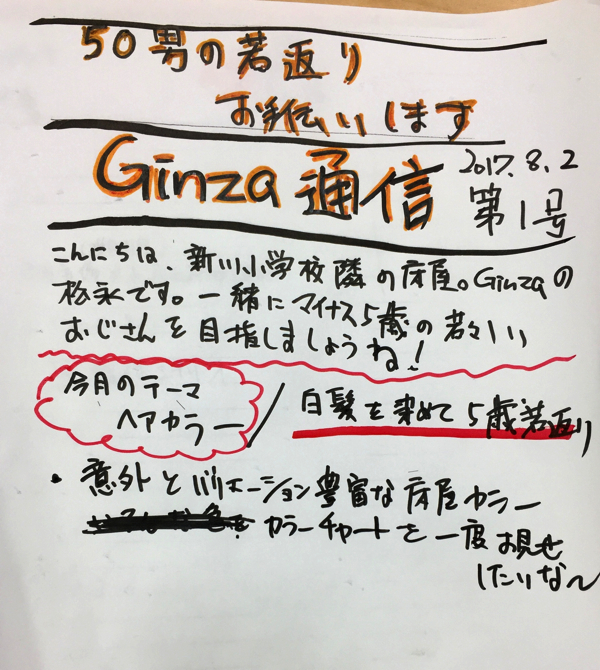 50男の若返り
お手伝いします
Ginza通信
2017.8.2
第1号
こんにちは、新川小学校隣の床屋。Ginzaの
松永です。一緒にマイナス5歳の若々しい
おじさんを目指しましょうね!
今月のテーマ
ヘアカラー
白髪を染めて5歳若返り
・意外とバリエーション豊富な床屋カラー
カラーチャートを一度お見せ
したいな〜